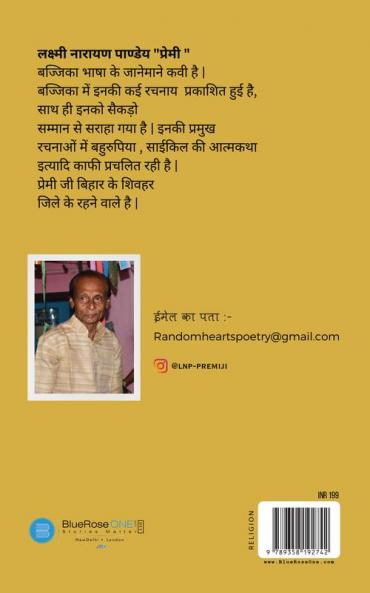 लक्ष्मी नारायण पाण्डेय "प्रेमी "
बज्जिका भाषा के जानेमाने कवी है |
बज्जिका में इनकी कई रचनाय प्रकाशित हुई है,
साथ ही इनको सैकड़ो
सम्मान से सराहा गया है | इनकी प्रमुख
रचनाओं में बहुरुपिया , साईकिल की आत्मकथा
इत्यादि काफी प्रचलित रही है |
प्रेमी जी बिहार के शिवहर
जिले के रहने वाले है |
ईमेल का पता :-
Randomheartspoetry@gmail.com
@LNP-PREMIJI
BlueRose ONE
Stories Matter
NewDelhi • London
RELIGION
INR 199
9 789358 192742
www.BlueRoseOne.com